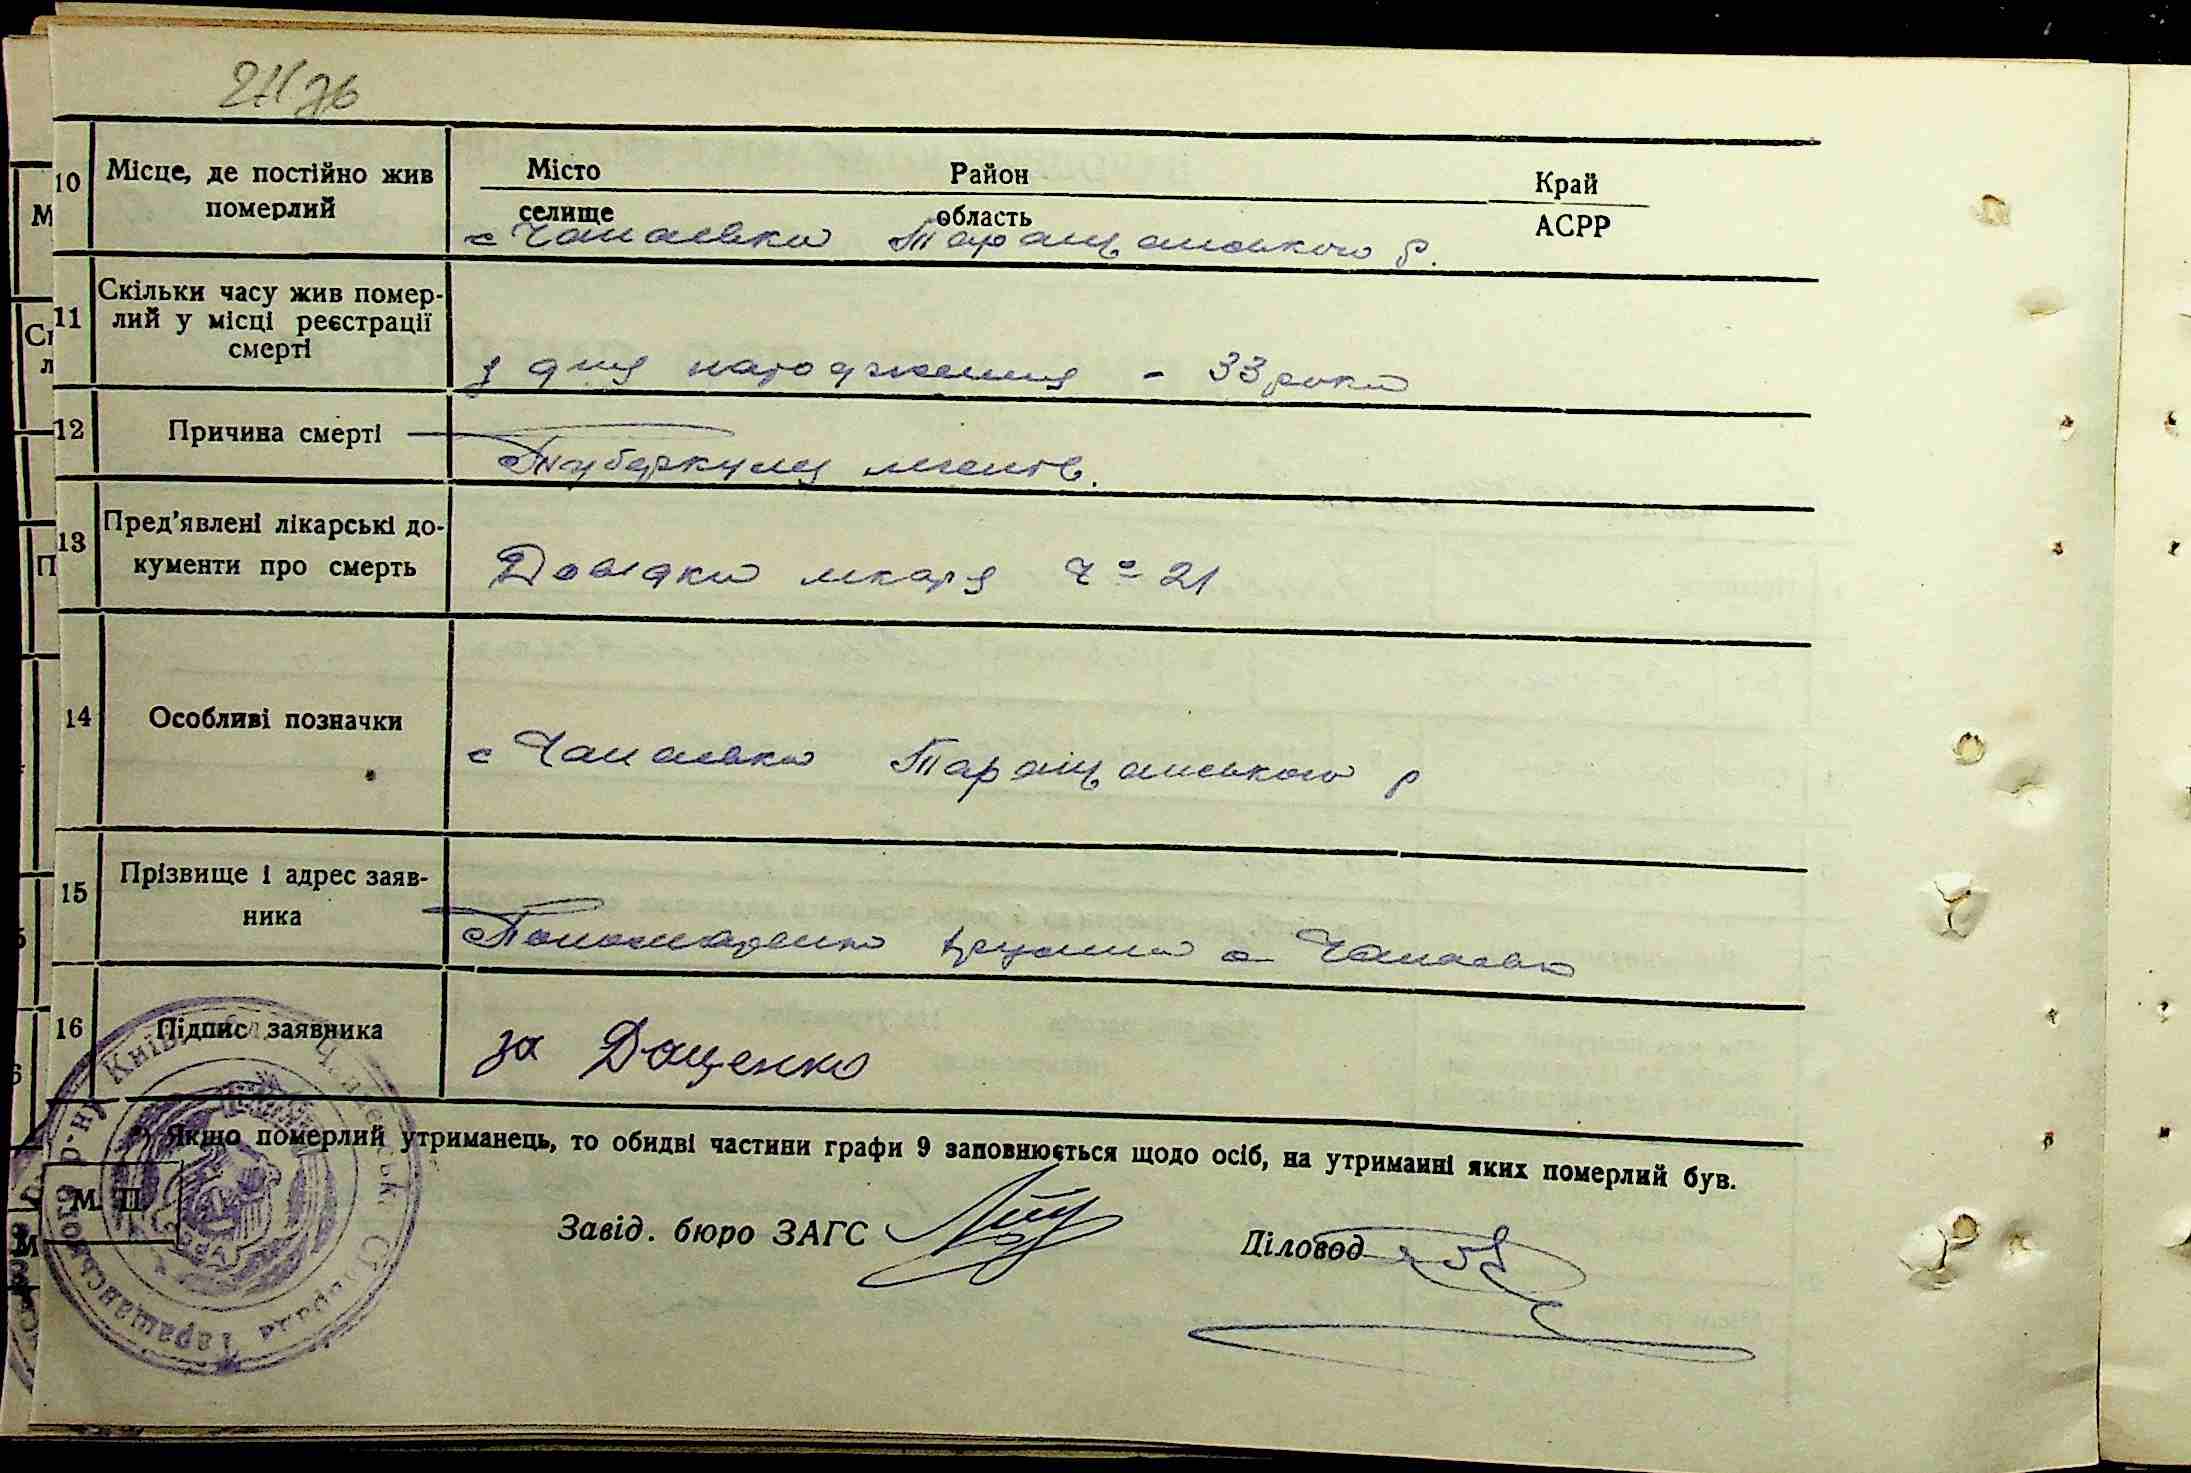 10 Місце, де постійно жив померлий
Місто Район Край
селище область АСРР
с Чапаєвка Таращанського р.
11 Скільки часу жив помер-
лий у місці реєстрації
смерті
з дня народження - 33 роки
12 Причина смерті
Туберкульоз легенів.
13 Пред'явлені лікарські до-
кументи про смерть
Довідка лікаря Ч° 21
14 Особливі позначки
с Чапаєвка Таращанського р
15 Прізвище і адрес заяв-
ника
Пономаренко с Чапаєвка
16 Підпис заявника
за Доценко
*) Якщо померлий утриманець, то обидві частини графи 9 заповнюється щодо осіб, на утриманні яких померлий був.
М. П.
Завід. бюро ЗАГС
Діловод
Таращанського р-ну